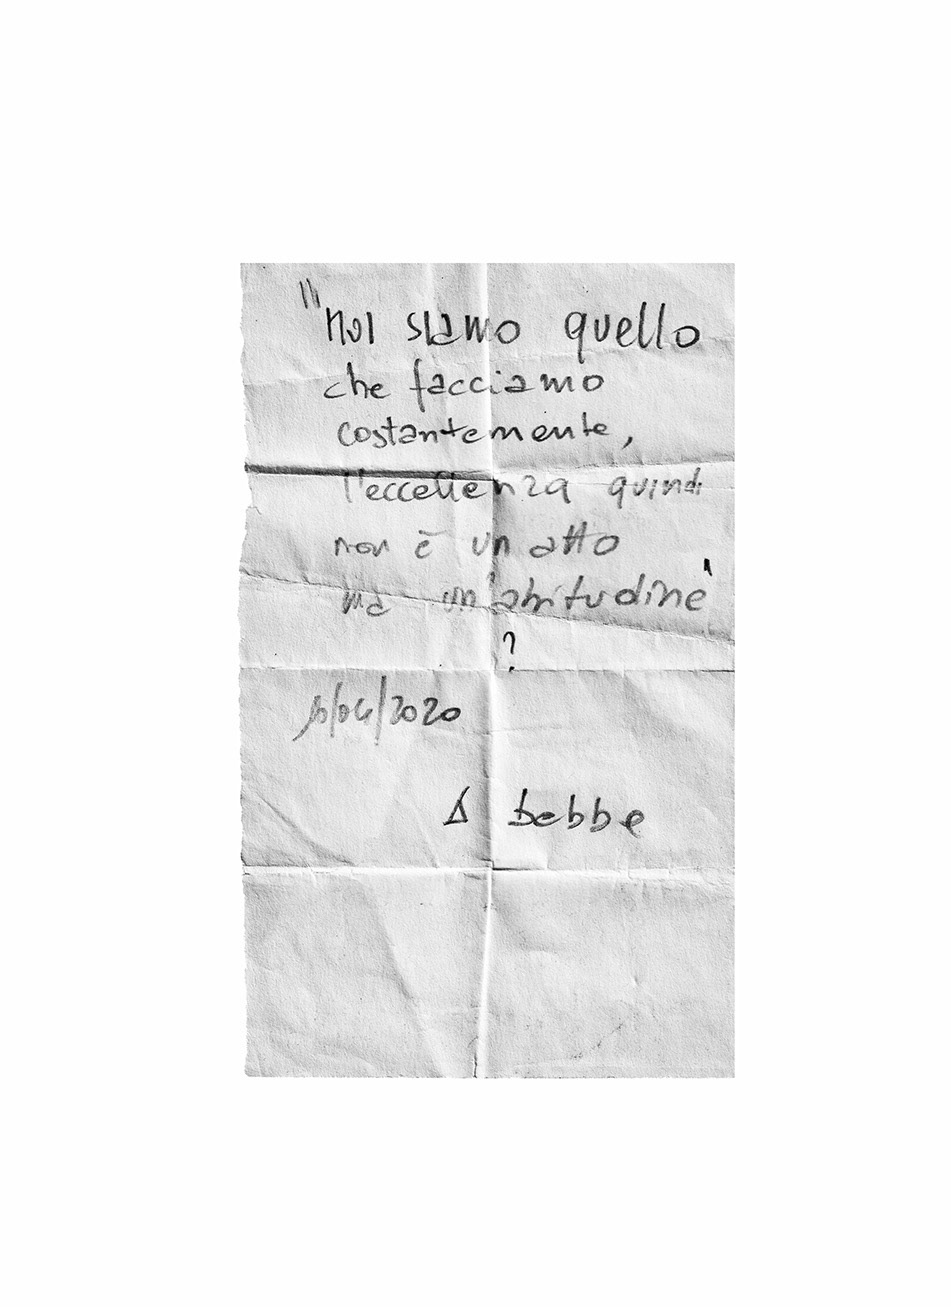 "Noi siamo quello
che facciamo
costantemente,
l'eccellenza quindi
non è un atto
ma un'abitudine"
?
/04/2020
A bebbe